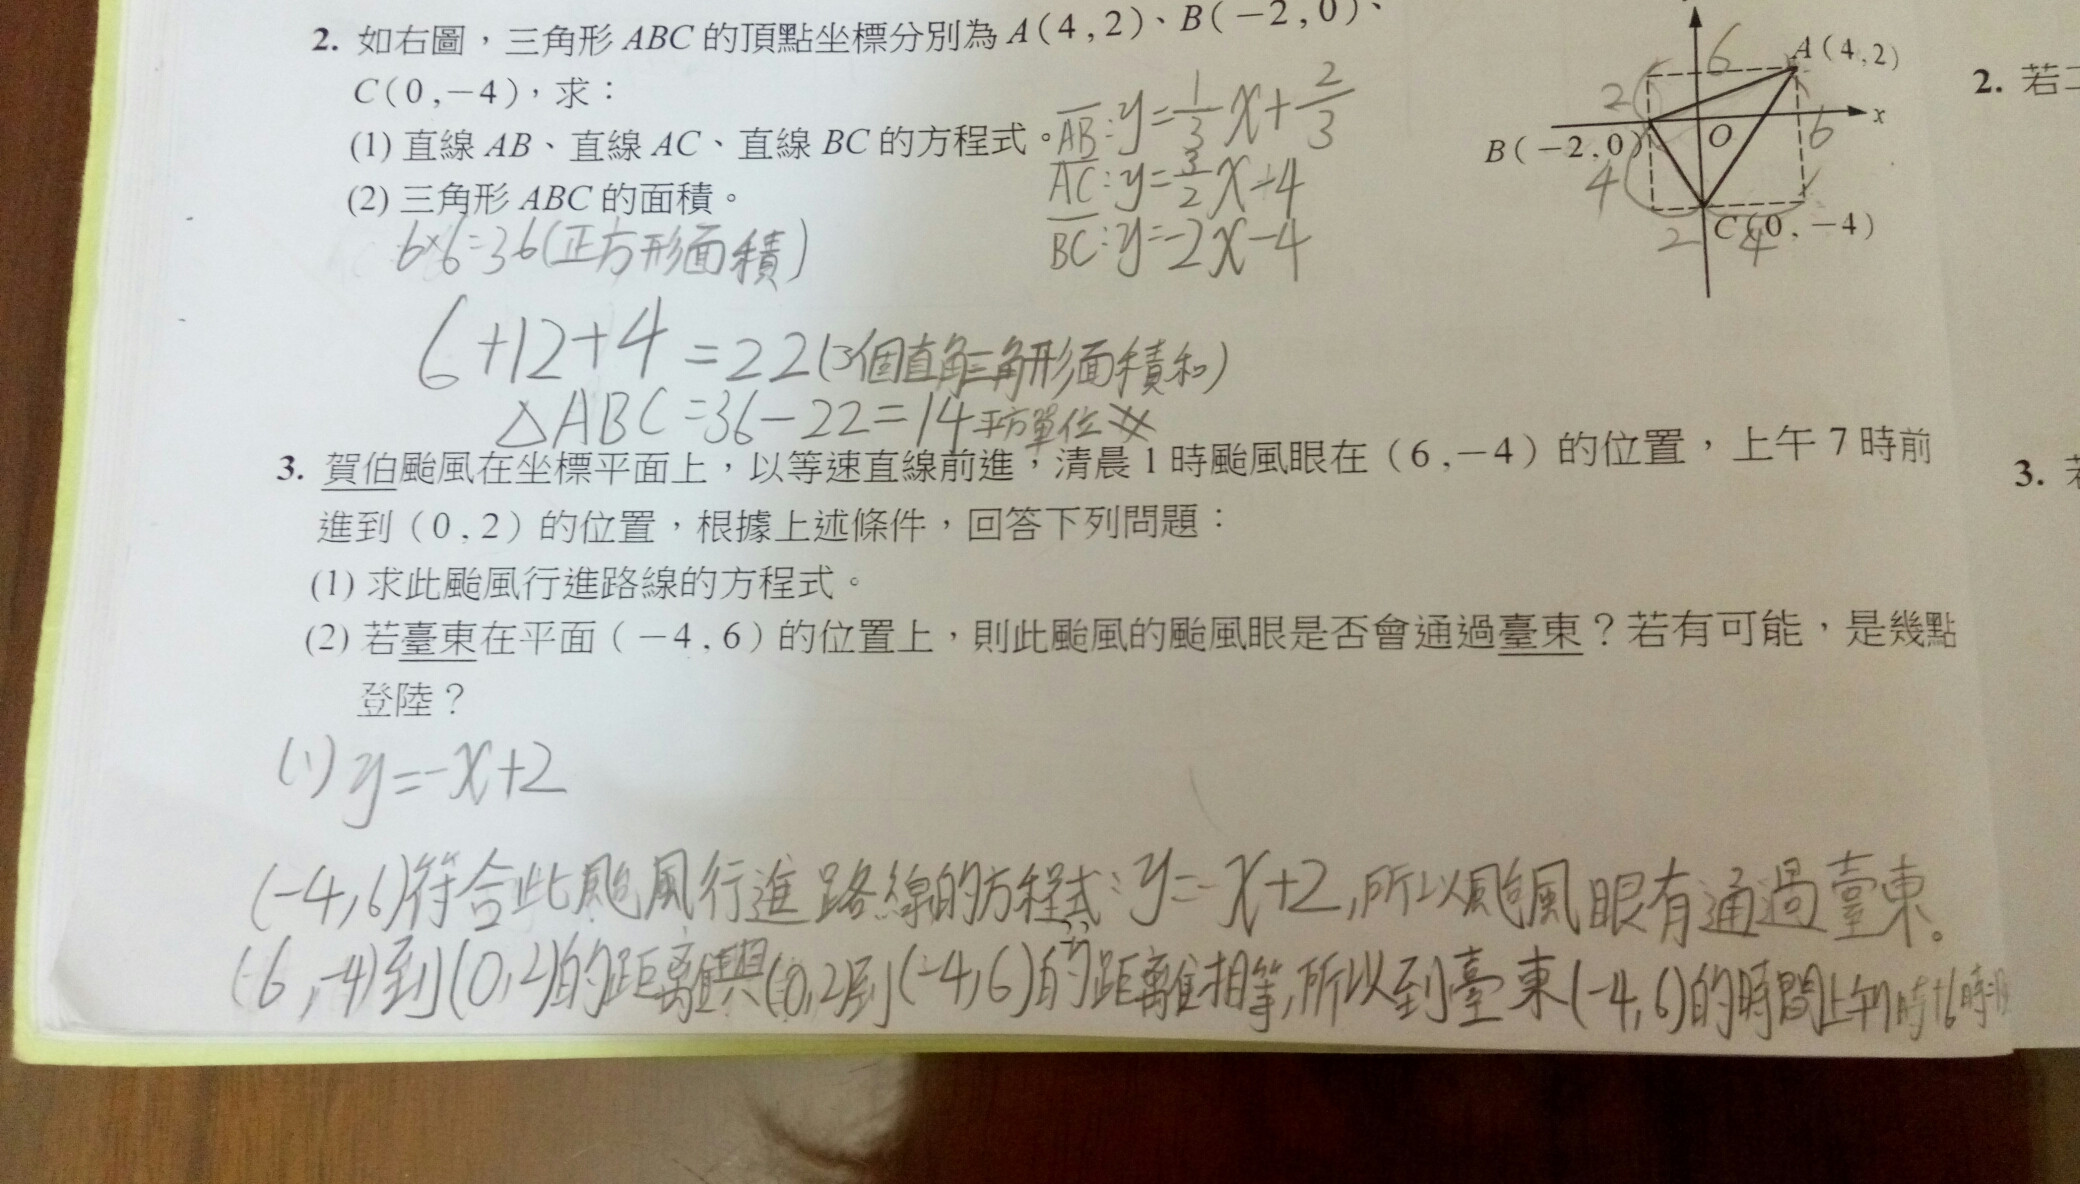 2. 如右圖，三角形 ABC 的頂點坐標分別為 A(4,2)、B(−2,0)、
C(0,−4)，求：
(1) 直線 AB、直線 AC、直線 BC 的方程式。
(2) 三角形 ABC 的面積。
AB:y=1/3x+2/3
AC:y=3/2x-4
BC:y=-2x-4
6×6=36(正方形面積)
6+12+4=22(3個直角三角形面積和)
△ABC=36-22=14平方單位
6
A(4,2)
2
x
6
B(−2,0)
O
4
C(0,−4)
2
4
3. 賀伯颱風在坐標平面上，以等速直線前進，清晨 1 時颱風眼在（6,−4）的位置，上午 7 時前
進到（0,2）的位置，根據上述條件，回答下列問題：
(1) 求此颱風行進路線的方程式。
(2) 若臺東在平面（−4,6）的位置上，則此颱風的颱風眼是否會通過臺東？若有可能，是幾點
登陸？
(1) y=-x+2
(-4,6)符合此颱風行進路線的方程式:y=-x+2,所以颱風眼有通過臺東。
(6,-4)到(0,2)的距離與(0,2)到(-4,6)的距離相等,所以到臺東(-4,6)的時間上午7時+6時
2. 若二
3. 若